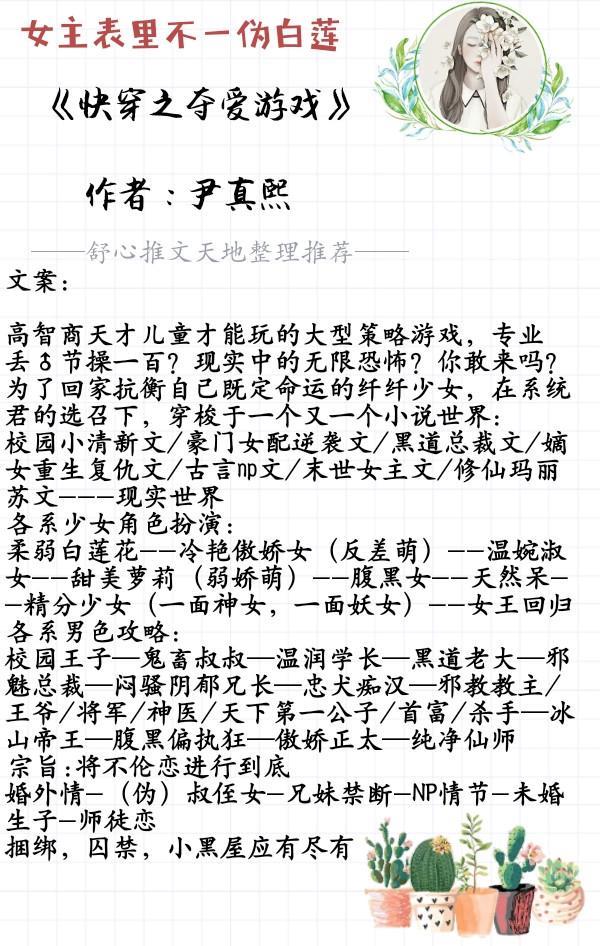 女主表里不一伪白莲
《快穿之夺爱游戏》
作者：尹真熙
——舒心推文天地整理推荐——
文案：
高智商天才儿童才能玩的大型策略游戏，专业
丢♂节操一百？现实中的无限恐怖？你敢来吗？
为了回家抗衡自己既定命运的纤纤少女，在系统
君的选召下，穿梭于一个又一个小说世界：
校园小清新文/豪门女配逆袭文/黑道总裁文/嫡
女重生复仇文/古言np文/末世女主文/修仙玛丽
苏文———现实世界
各系少女角色扮演：
柔弱白莲花——冷艳傲娇女（反差萌）——温婉淑
女——甜美萝莉（弱娇萌）——腹黑女——天然呆—
—精分少女（一面神女，一面妖女）——女王回归
各系男色攻略：
校园王子—鬼畜叔叔—温润学长—黑道老大—邪
魅总裁—闷骚阴郁兄长—忠犬痴汉—邪教教主/
王爷/将军/神医/天下第一公子/首富/杀手—冰
山帝王—腹黑偏执狂—傲娇正太—纯净仙师
宗旨:将不伦恋进行到底
婚外情-（伪）叔侄女-兄妹禁断-NP情节-未婚
生子-师徒恋
捆绑，囚禁，小黑屋应有尽有